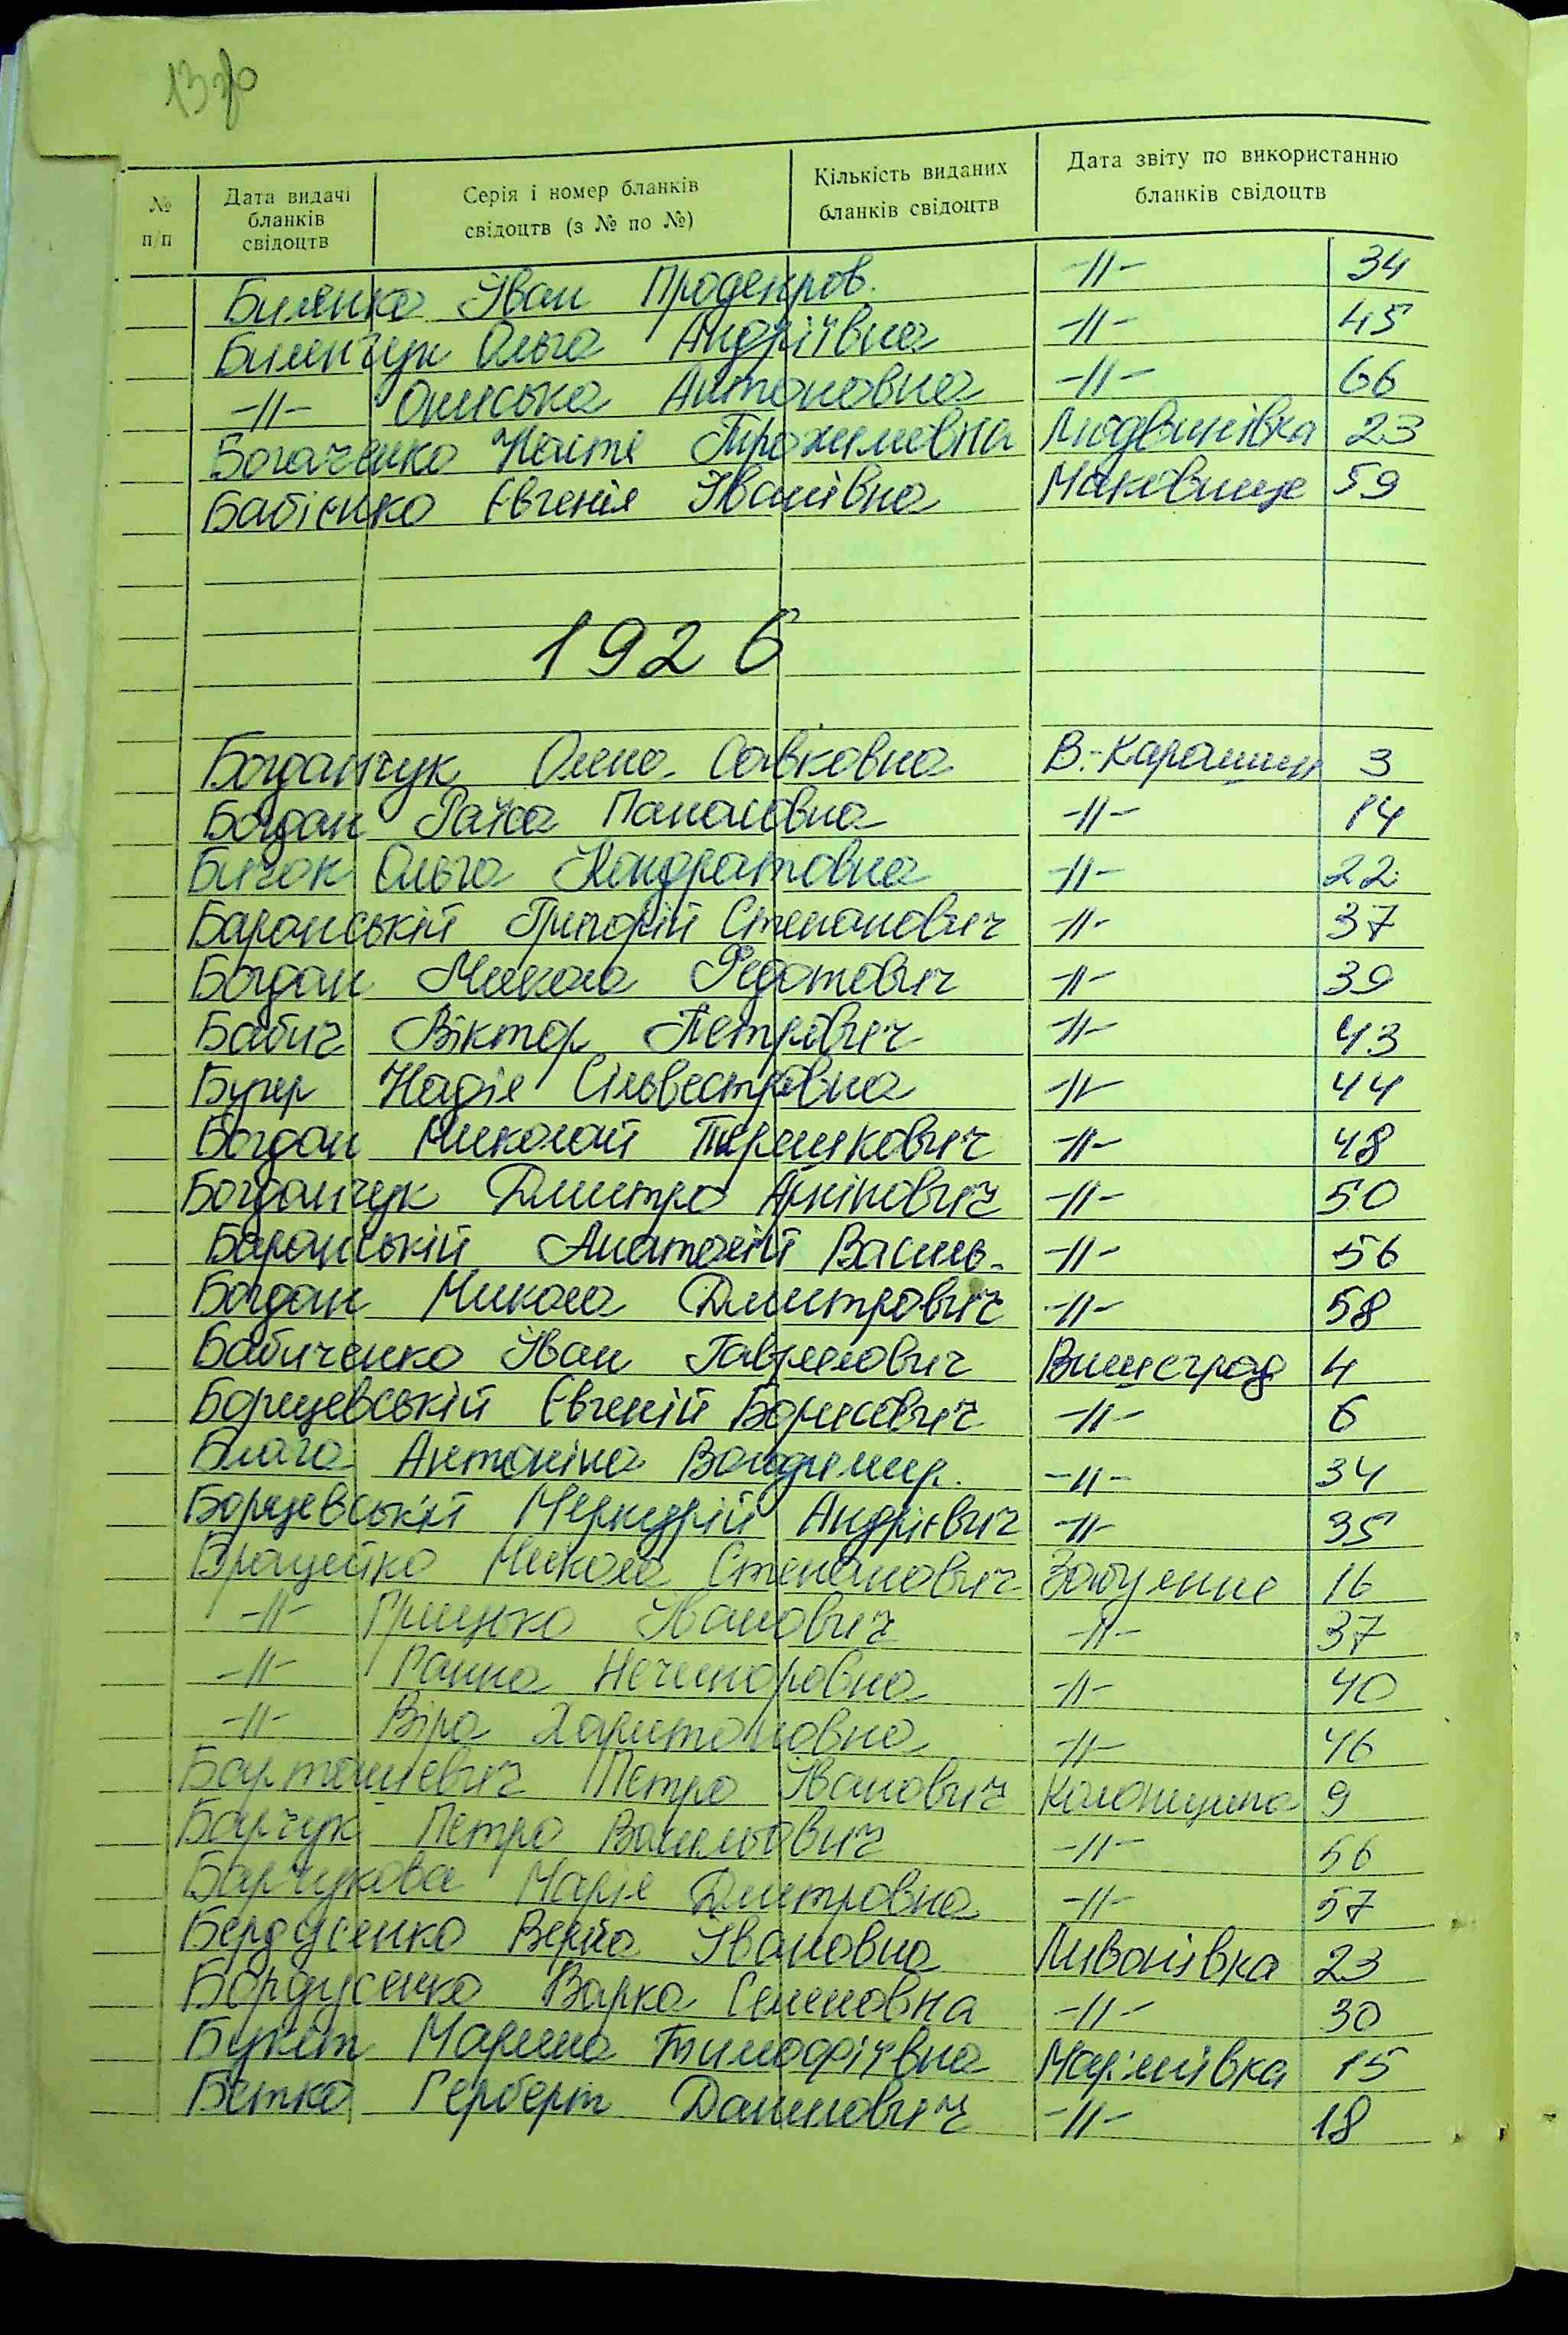 13зв
№ п/п | Дата видачі бланків свідоцтв | Серія і номер бланків свідоцтв (з № по №) | Кількість виданих бланків свідоцтв | Дата звіту по використанню бланків свідоцтв
Биленко Іван -//- 34
Биленчук Ольга Андріївна -//- 45
-//- Ониська Антоновна -//- 66
Богаченко Настя Трохимовна Людвинівка 23
Бабієнко Євгенія Іванівна Маковище 59
1926
Богданчук Олена Савковна В.-Карашин 3
Богдан Раїса Панасовна -//- 14
Бичок Ольга Кондратовна -//- 22
Баранській Григорій Степанович -//- 37
Богдан Микола Федотович -//- 39
Бабич Віктор Петрович -//- 43
Бугер Надія Сільвестровна -//- 44
Богдан Миколай Терешкович -//- 48
Богданчук Дмитро -//- 50
Баранській Анатолій Василь. -//- 56
Богдан Микола Дмитрович -//- 58
Бабиченко Іван Гаврилович Вишеград 4
Борщевській Євгеній Борисович -//- 6
Блага Антоніна Володимир. -//- 34
Борщевській Меркурій Андрієвич -//- 35
Брацейко Микола Степанович Забуяння 16
-//- Грицько Іванович -//- 37
-//- Ганна Нечипоровна -//- 40
-//- Віра Харитоновна -//- 46
Барташевич Петро Іванович Колонщина 9
Барчук Петро Васильович -//- 56
Барчукова Марія Дмитровна -//- 57
Бердусенко Івановна Ливонівка 23
Бордусенко Варка Семеновна -//- 30
Букет Марина Тимофіївна Мар'янівка 15
Бетко Герберт Данилович -//- 18